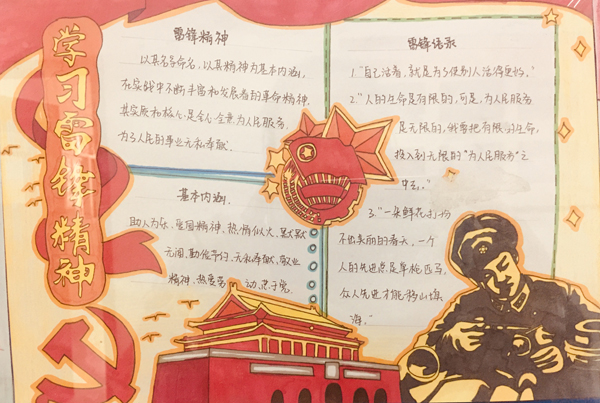 学习雷锋精神
雷锋精神
以其名字命名，以其精神为基本内涵，
在实践中不断丰富和发展着的革命精神，
其实质和核心是全心全意为人民服务，
为了人民的事业无私奉献。
基本内涵
助人为乐、爱国精神、热情似火、默默
无闻、勤俭节约、无私奉献、敬业
精神、热爱劳动、忠于党
雷锋语录
1."自己活着，就是为了使别人活得更好。"
2."人的生命是有限的，可是，为人民服务
是无限的，我要把有限的生命，
投入到无限的"为人民服务"之
中去。"
3."一朵鲜花打扮
不出美丽的春天，一个
人的先进总是单枪匹马，
众人先进才能移山填
海。"